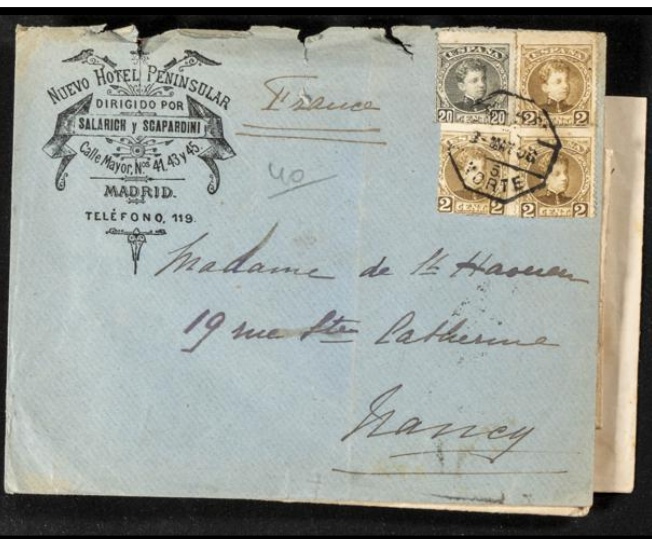 NUEVO HOTEL PENINSULAR
DIRIGIDO POR
SALARICH Y SCAPARDINI
Calle Mayor, Nos 41, 43 y 45
MADRID.
TELÉFONO, 119.
France
40
ESPAÑA
20 CENTS 20
ESPAÑA
2 CENTS 2
2 CENTS 2
2 CENTS 2
NORTE
Madame de St
19 rue Ste Catherine
Nancy